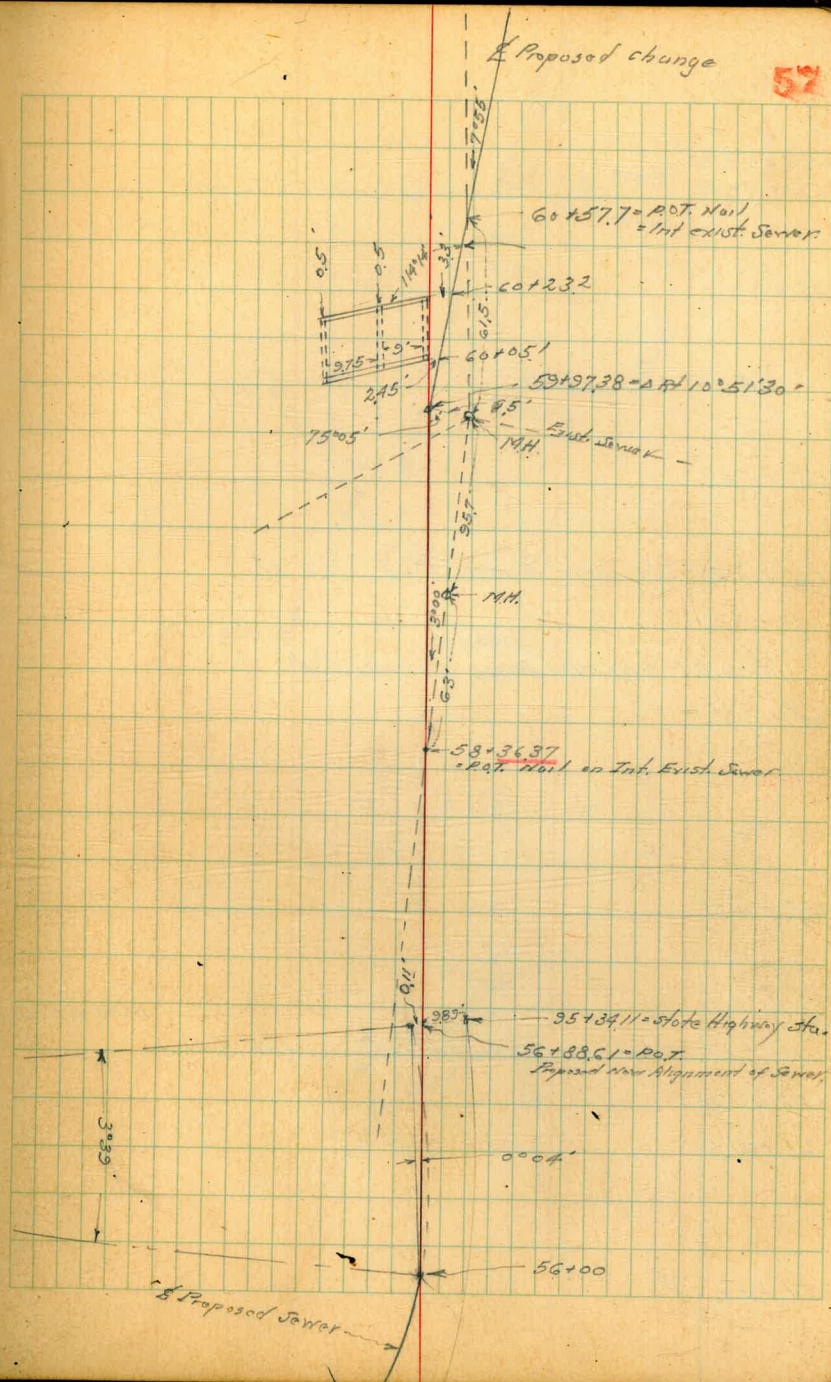 ℄ Proposed change
57
7°55'
60+57.7= P.O.T. Nail
=Int exist. Sewer.
0.5'
0.5
114°14'
3.3'
60+23.2
61.5
9.75
9'
60+05.1
2.45'
59+97.38=Δ Rt 10°51'30"
75°05'
8.5'
M.H.
Exist. Sewer
95.7
M.H.
3°00'
63'
58+36.37
=P.O.T. Nail on Int. Exist. Sewer.
0.11'
9.89'
95+34.11=State Highway sta.
56+88.61=P.O.T.
Proposed New Alignment of Sewer.
3°39'
0°04'
56+00
℄ Proposed Sewer